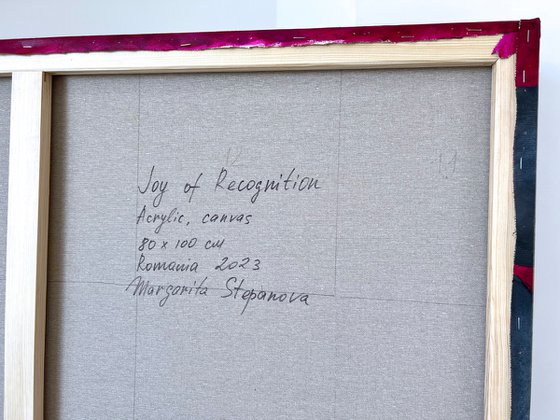 Joy of Recognition
Acrylic, canvas
80 x 100 см
Romania 2023
Margarita Stepanova